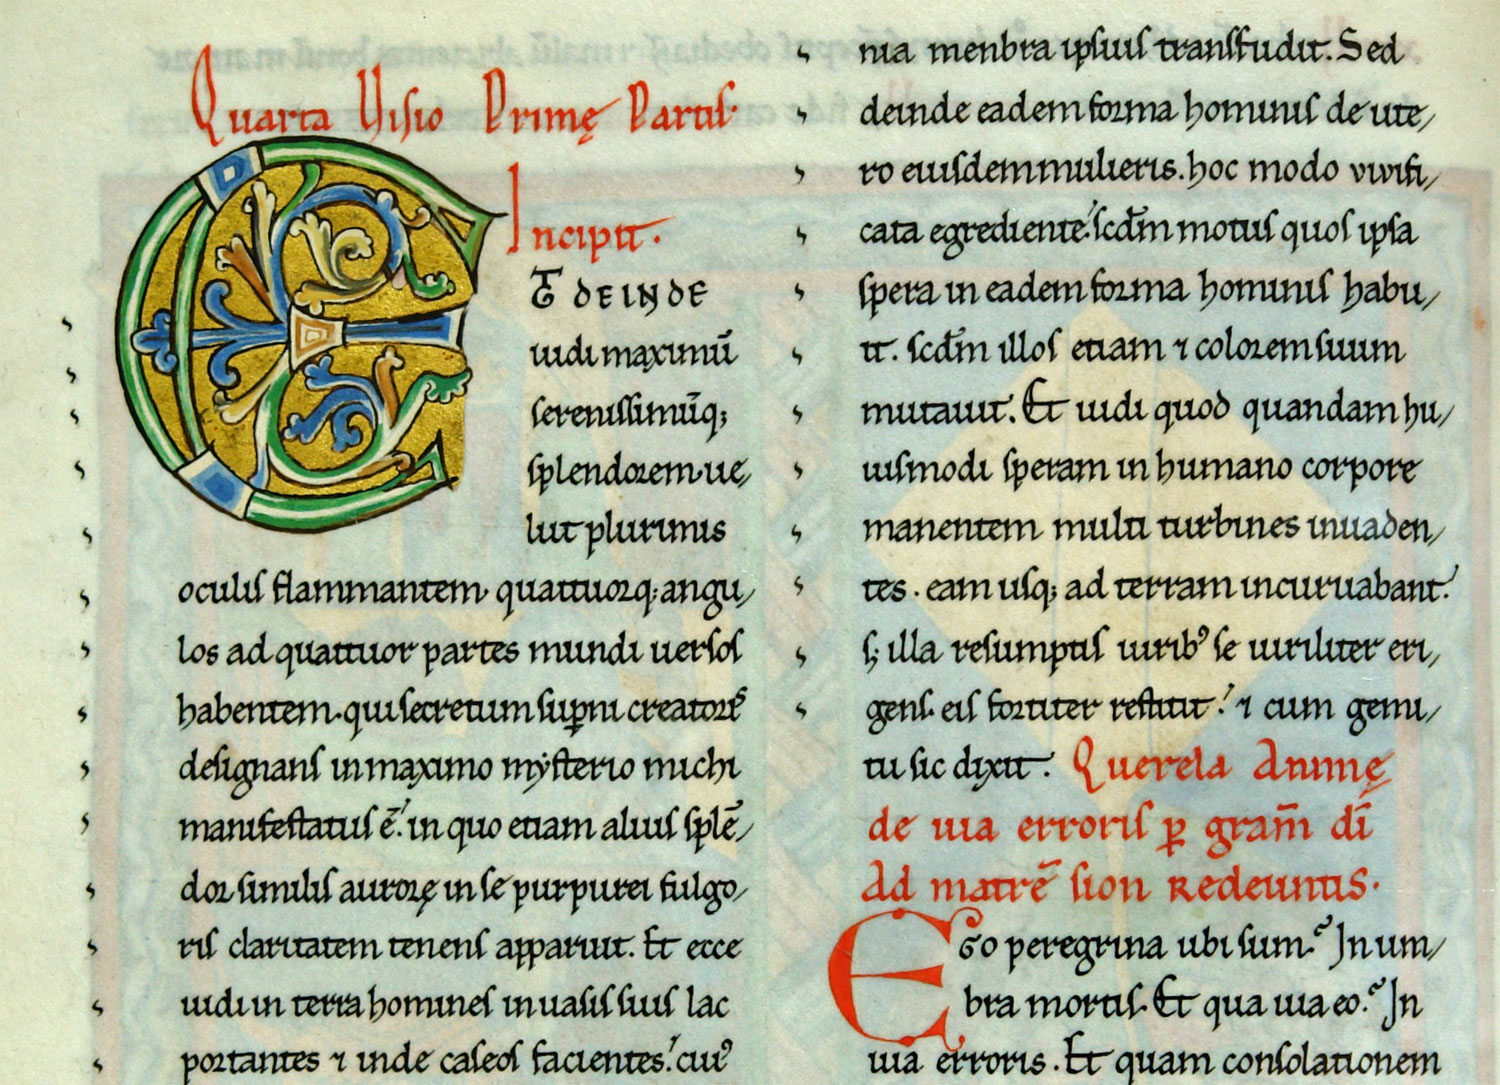 Quarta Uisio Primę Partis.
Incipit.
Et deinde
uidi maximū
serenissimūq;
splendorem ue/
lut plurimis
oculis flammantem. quattuorq; angu/
los ad quattuor partes mundi uersos
habentem. qui secretum supni creatoris
designans in maximo mysterio michi
manifestatus ē. in quo etiam alius splē/
dor similis aurorę in se purpurei fulgo/
ris claritatem tenens apparuit. Et ecce
uidi in terra homines in uasis suis lac
portantes ⁊ inde caseos facientes. cuiꝰ
nia menbra ipsius transfudit. Sed
deinde eadem forma hominis de ute/
ro eiusdem mulieris. hoc modo vivifi/
cata egrediente. scdm motus quos ipsa
spera in eadem forma hominis habu/
it. scdm illos etiam ⁊ colorem suum
mutauit. Et uidi quod quandam hu/
iusmodi speram in humano corpore
manentem multi turbines inuaden/
tes. eam usq; ad terram incuruabant.
s; illa resumptis uiribꝰ se uiriliter eri/
gens. eis fortiter restitit. ⁊ cum gemi/
tu sic dixit. Querela Animę
de uia erroris ꝑ gram̄ dī
Ad matrē sion redeuntis.
Ego peregrina ubi sum? In um/
bra mortis. Et qua uia eo? In
uia erroris. Et quam consolationem